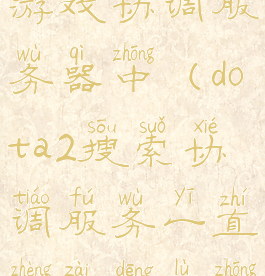 游戏协调服
wù qì zhōng
务器中（do
sōu suǒ xié
ta2搜索协
tiáo fú wù yī zhí
调服务一直
zhèng zài dēng lù zhōng